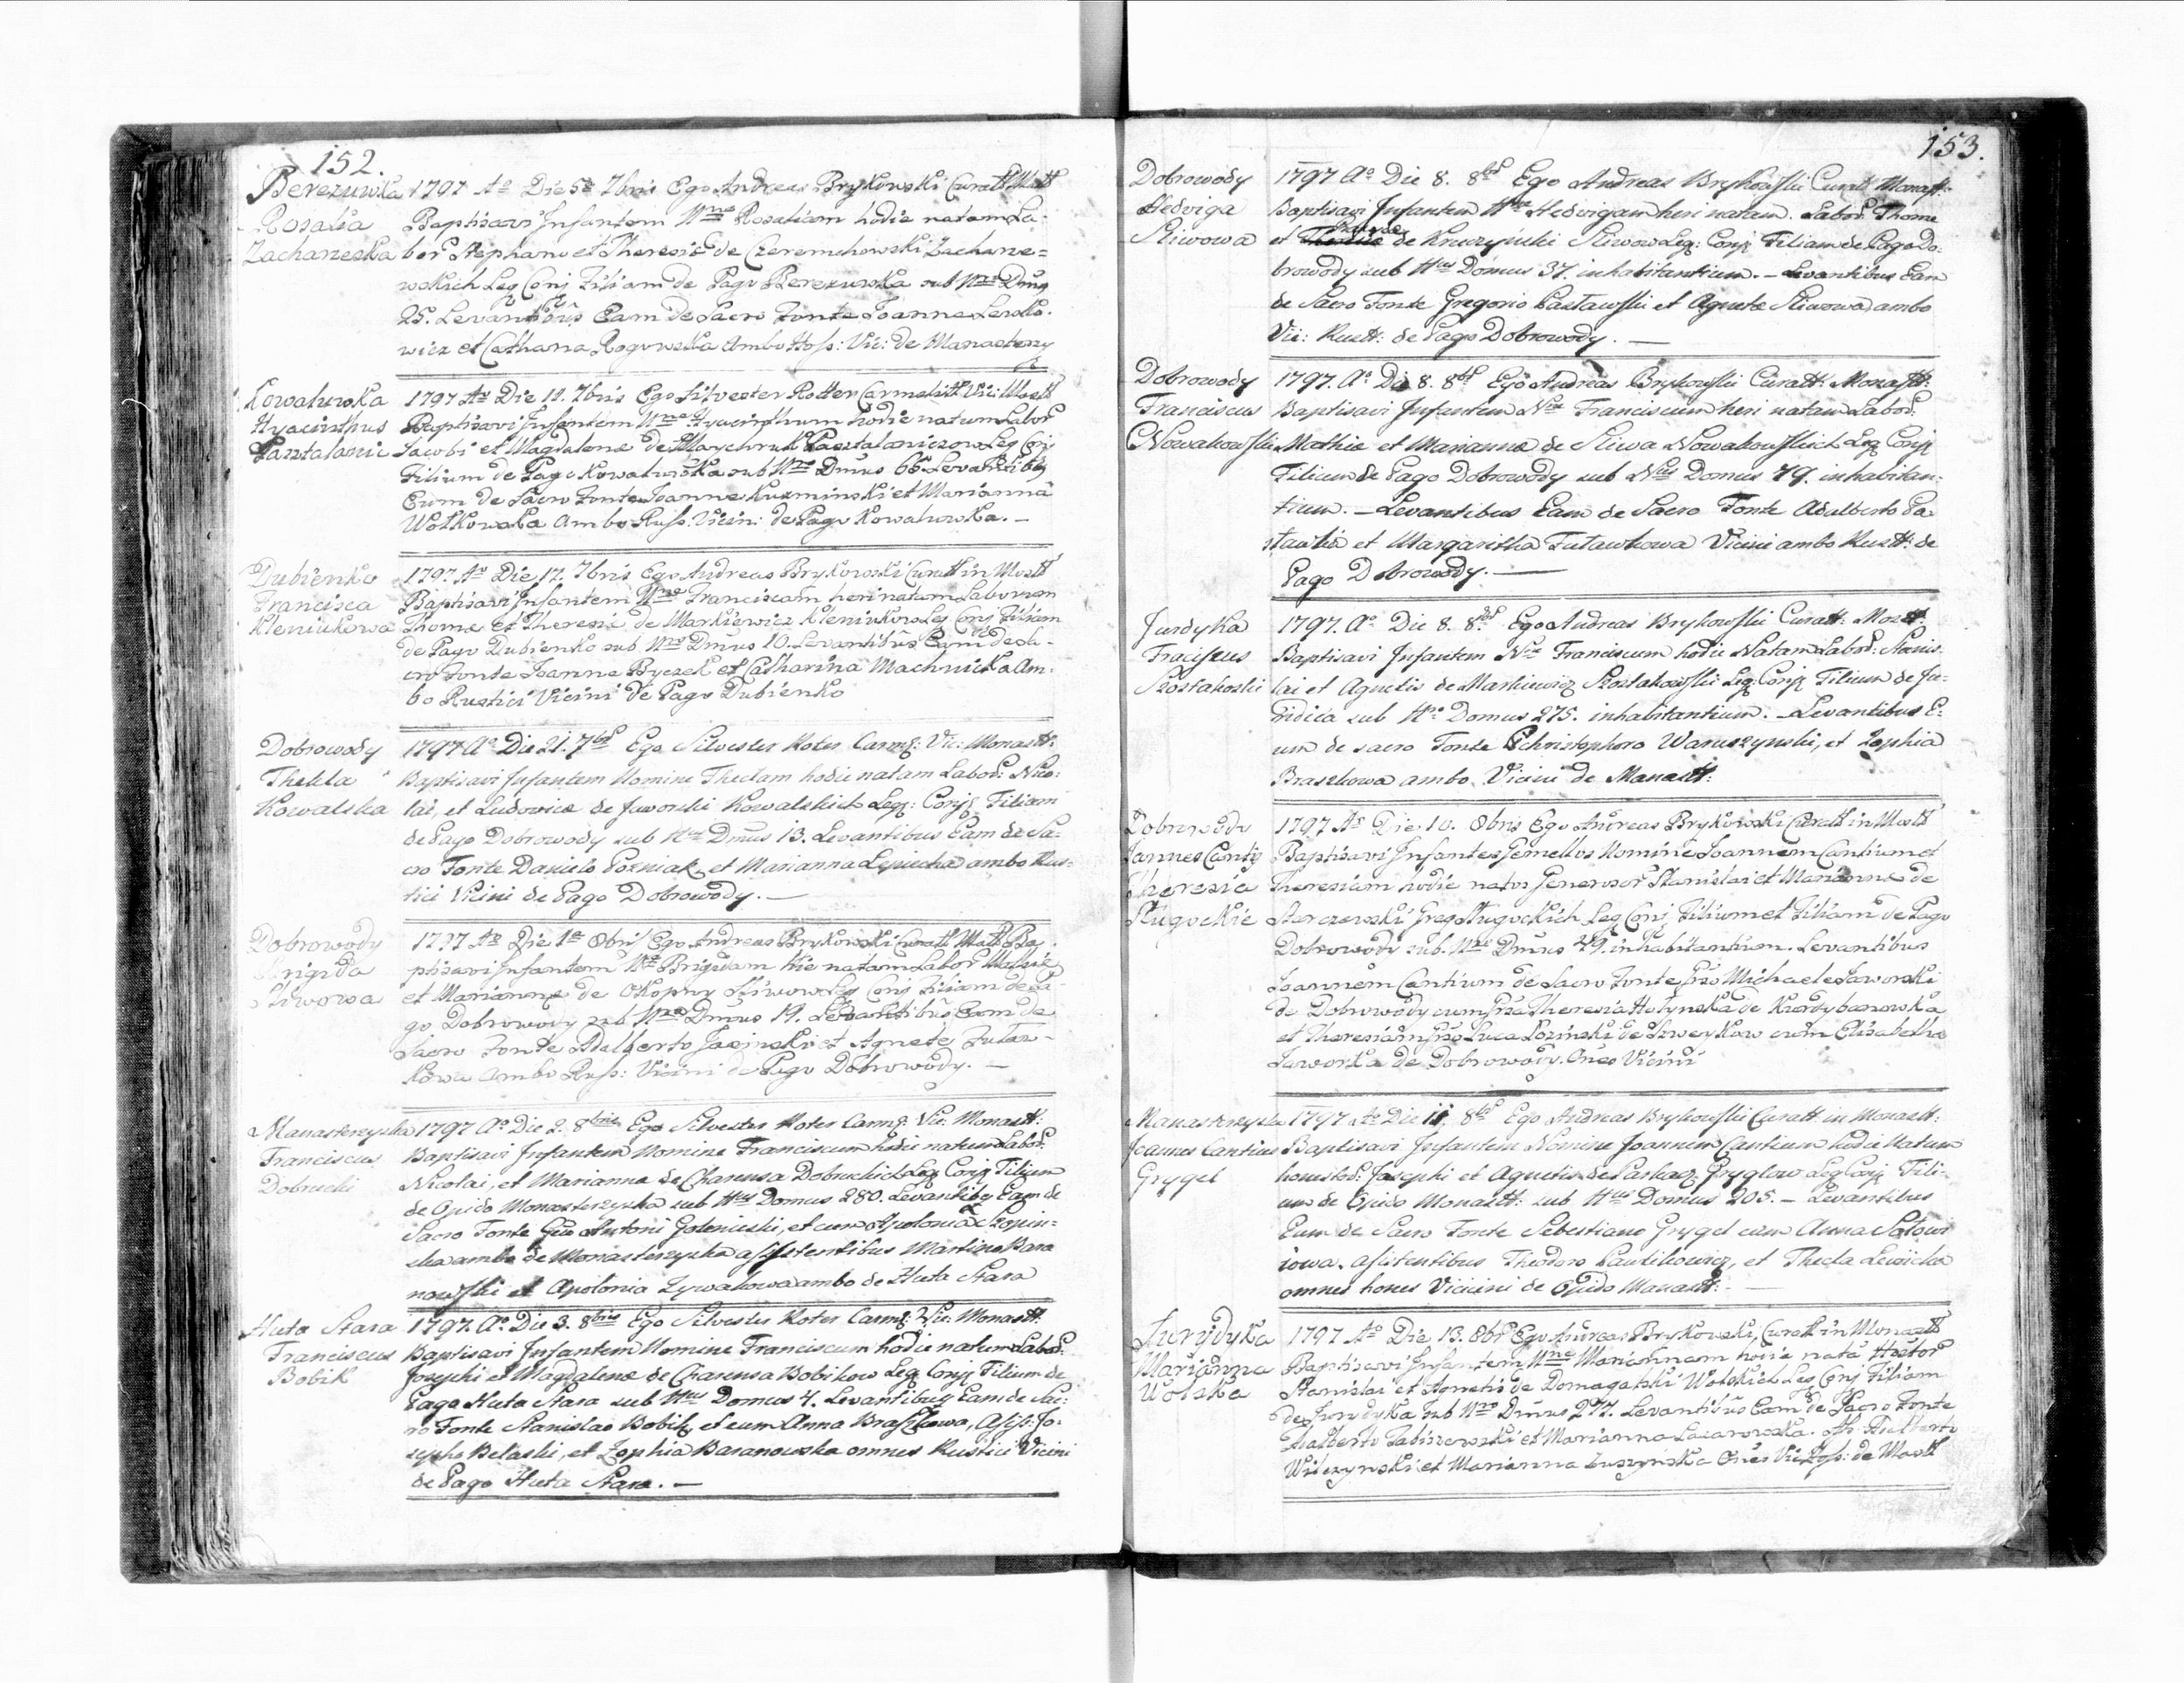 152.
Berezuwka 1797 Ao Die 5a 7bris Ego Andreas Brykowski Curatt Mastt
Rosalia Baptisavi Infantem Nne Rosaliam hodie natam La-
Zachareska bor Stephani et Theresiæ de Czeremchowski Zachare=
wskich Leg Conj Filiam de Pago Berezuwka sub Nro Dmus
25. Levantibus Eam de Sacro Fonte Joanne Lesko-
wicz et Cathana Rogowska Ambo Hosp: Vic: de Manastery
Kowaluwka 1797 Ao Die 11. 7bris Ego Silvester Kotter Carmelitt Vic: Mastt
Hyacinthus Baptisavi Infantem Nne Hyacinthum hodie natum Labor
Pantalonic Jacobi et Magdalenæ de Leg Conj
Filium de Pago Kowaluwka sub Nro Dmus 66 Levantibq
Eum de Sacro Fonte Joanne Kuzminski et Marianna
Wolkowska Ambo Rusp: Vicin: de Pago Kowaluwka. —
Dubienko 1797. Ao Die 17. 7bris Ego Andreas Brykowski Curatt in Mostt
Francisca Baptisavi Infantem Nne Franciscam heri natam Laborum
Kleniukowa Thomæ et Theresiæ de Markiewicz Kleniukow Leg Conj Filiam
de Pago Dubienko sub Nro Dmus 10. Levantibus Eam de Sa-
cro Fonte Joanne Byczek et Catharina Machnicka Am-
bo Rustici Vicini de Pago Dubienko
Dobrowody 1797 Ao Die 21. 7bris Ego Silvester Koter Carmq: Vic: Monastt:
Thekla Baptisavi Infantem Nomine Theclam hodie natam Labod: Nico-
Kowalska lai, et Ludovicæ de Jaworski Kowalskich Leg: Conjq Filiam
de Pago Dobrowody sub Nro Dmus 13. Levantibus Eam de Sa-
cro Fonte Danielo Pozniak, et Marianna Lepiecha ambo Rus-
tici Vicini de Pago Dobrowody. —
Dobrowody 1797 Ao Die 1a 8bris Ego Andreas Brykowski Curatt Mastt Ba-
Brigida ptisavi Infantem Nne Brigidam hie natam Labor
Sliwowa et Mariannæ de Okopny Sliwow Leg Conj Filiam de Pa-
go Dobrowody sub Nro Dmus 19. Levantibus Eam de
Sacro Fonte Adalberto Jasinski et Agnete Futaw-
kowa Ambo Rusp: Vicini de Pago Dobrowody. —
Manasterzyska 1797 Ao Die 2. 8bris Ego Silvester Koter Carmq: Vic: Monastt:
Franciscus Baptisavi Infantem Nomine Franciscum hodie natum Labod:
Dobrucki Nicolai, et Mariannæ de Charensa Dobruckich Leg Conjq Filium
de Opido Monasterzyska sub Nro Domus 280. Levantibq Eam de
Sacro Fonte Antoni Golenieski, et cum Apolonia Szopin-
ska ambo de Monasterzyska assistentibus Martino Bara
nowski et Apolonia Zywakowa ambo de Huta Stara
Huta Stara 1797. Ao Die 3. 8bris Ego Silvester Koter Carmq: Vic: Monastt:
Franciscus Baptisavi Infantem Nomine Franciscum hodie natum Labod:
Bobik Josephi et Magdalenæ de Charensa Bobikow Leg Conjq Filium de
Pago Huta Stara sub Nro Domus 4. Levantibus Eam de Sac-
ro Fonte Stanislao Bobik, et cum Anna Braszkowa, Assist: Jo-
sepho Belaski, et Zophia Baranowska omnes Rustici Vicini
de Pago Huta Stara. —
153.
Dobrowody 1797 Ao Die 8. 8bris Ego Andreas Brykowski Curatt Monastt:
Hedviga Baptisavi Infantem Nne Hedvigam heri natam. Labod: Thomæ
Sliwowa et de Kruczynski Sliwow Leg: Conjq Filiam de Pago Do-
browody sub Nro Domus 37. inhabitantium. — Levantibus Eam
de Sacro Fonte Gregorio Pastawski et Agnete Sliwowa ambo
Vic: Rustt: de Pago Dobrowody. —
Dobrowody 1797. Ao Die 8. 8bris Ego Andreas Brykowski Curatt: Monastt:
Franciscus Baptisavi Infantem Nne Franciscum heri natam Labod:
Nowakowski Mathiæ et Mariannæ de Sliwa Nowakowskich Leg Conjq
Filium de Pago Dobrowody sub Nro Domus 79. inhabitan-
tium. — Levantibus Eam de Sacro Fonte Adalberto Pa-
et Margaritha Futawkowa Vicini ambo Rustt: de
Pago Dobrowody. —
Jurdyka 1797. Ao Die 8. 8bris Ego Andreas Brykowski Curatt: Mostt:
Franciscus Baptisavi Infantem Nne Franciscum hodie Natam Labod: Stanis-
Szostakoski lai et Agnetis de Markiewicz Szostakowski Leg: Conjq Filium de Ju-
ridica sub Nro Domus 275. inhabitantium. — Levantibus E-
um de sacro Fonte Christophoro Waruszynski, et Zophia
Braszkowa ambo Vicini de Manastt:
Dobrowody 1797 Ao Die 10. 8bris Ego Andreas Brykowski Curatt in Mostt
Joannes Cantiq Baptisavi Infantes Gemellos Nomine Joannem Cantium et
Theresia Theresiam hodie natos Generosor Stanislai et Mariannæ de
Slugockie Starczewski Greg Slugockich Leg Conj Filium et Filiam de Pago
Dobrowody sub. Nro Dmus 49. inhabitantium. Levantibus
Joannem Cantium de Sacro Fonte Michaele Jaworski
de Dobrowody cum Theresia Hotynska de Kordybanowka
et Theresiam Luca Lozinski de Szweykow cum Elisabetha
Jaworska de Dobrowody. Ones Vicini
Manasterzyska 1797 Ao Die 11. 8bris Ego Andreas Brykowski Curatt in Monastt:
Joannes Cantius Baptisavi Infantem Nomine Joannem Cantium hodie Natum
Grygel honestod: Josephi et Agnetis de Gryglow Leg Conjq Fili-
um de Opido Monastt: sub Nro Domus 205. — Levantibus
Eum de Sacro Fonte Sebestiano Grygel cum Anna
iowa. Assistentibus Theodoro Pawlikowicz, et Thecla Lewicka
omnes hones Vicini de Opido Manastt: —
Jurydyka 1797 Ao Die 13. 8bris Ego Andreas Brykowski, Curatt in Monastt
Marianna Baptisavi Infantem Nne Mariannam hodie natā
Wolska Stanislai et Agnetis de Domagalski Wolskich Leg Conj Filiam
de Jurydyka sub Nro Dmus 277. Levantibus Eam de Sacro Fonte
Adalberto Fabiszewski et Marianna Lazarowska. Adalberto
Wilczynski et Marianna Luszynska Ones Vic Hosp: de Mastt